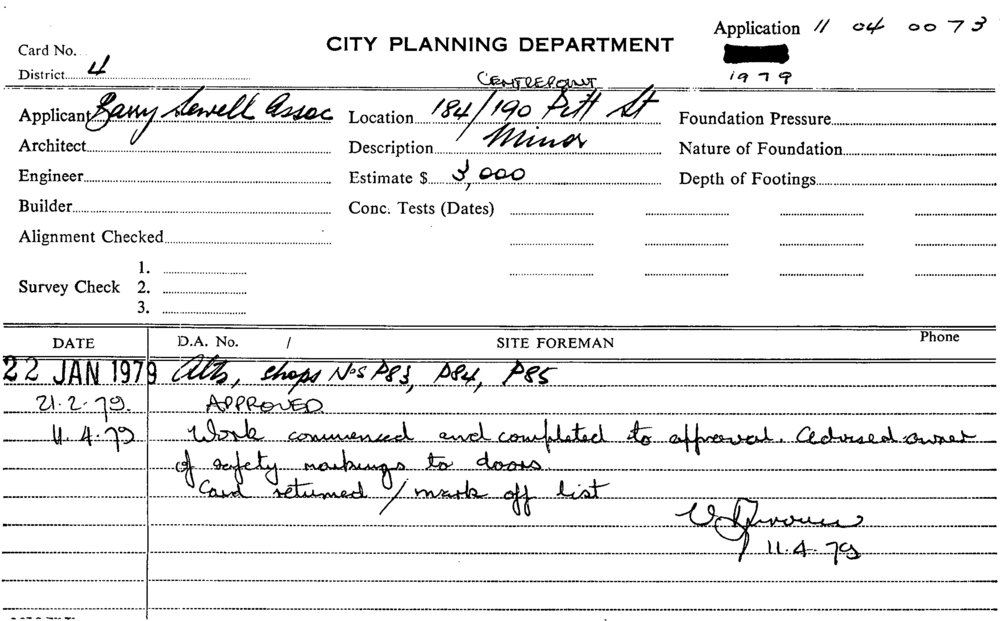 Application 11 04 0073
CITY PLANNING DEPARTMENT
Card No.
District 4
1979
CENTREPOINT
Applicant Barry Sewell Assoc
Location 184/190 Pitt St
Foundation Pressure
Architect
Description Minor
Nature of Foundation
Engineer
Estimate $ 3,000
Depth of Footings
Builder
Conc. Tests (Dates)
Alignment Checked
1.
Survey Check 2.
3.
DATE D.A. No. / SITE FOREMAN Phone
22 JAN 1979 Alts, shops Nos P83, P84, P85
21.2.79. APPROVED
11.4.79 Work commenced and completed to approval. Advised owner
of safety markings to doors.
Card returned / mark off list
11.4.79